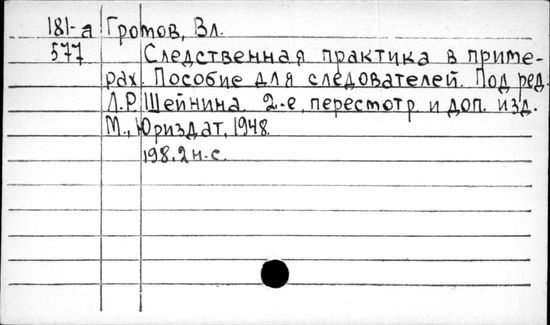 181-а Громов, Вл.
577 Следственная практика в приме-
рах. Пособие для следователей. Под ред.
Л.Р. Шейнина. 2-е, пересмотр. и доп. изд.
М., Юриздат, 1948.
198.2 н.с.